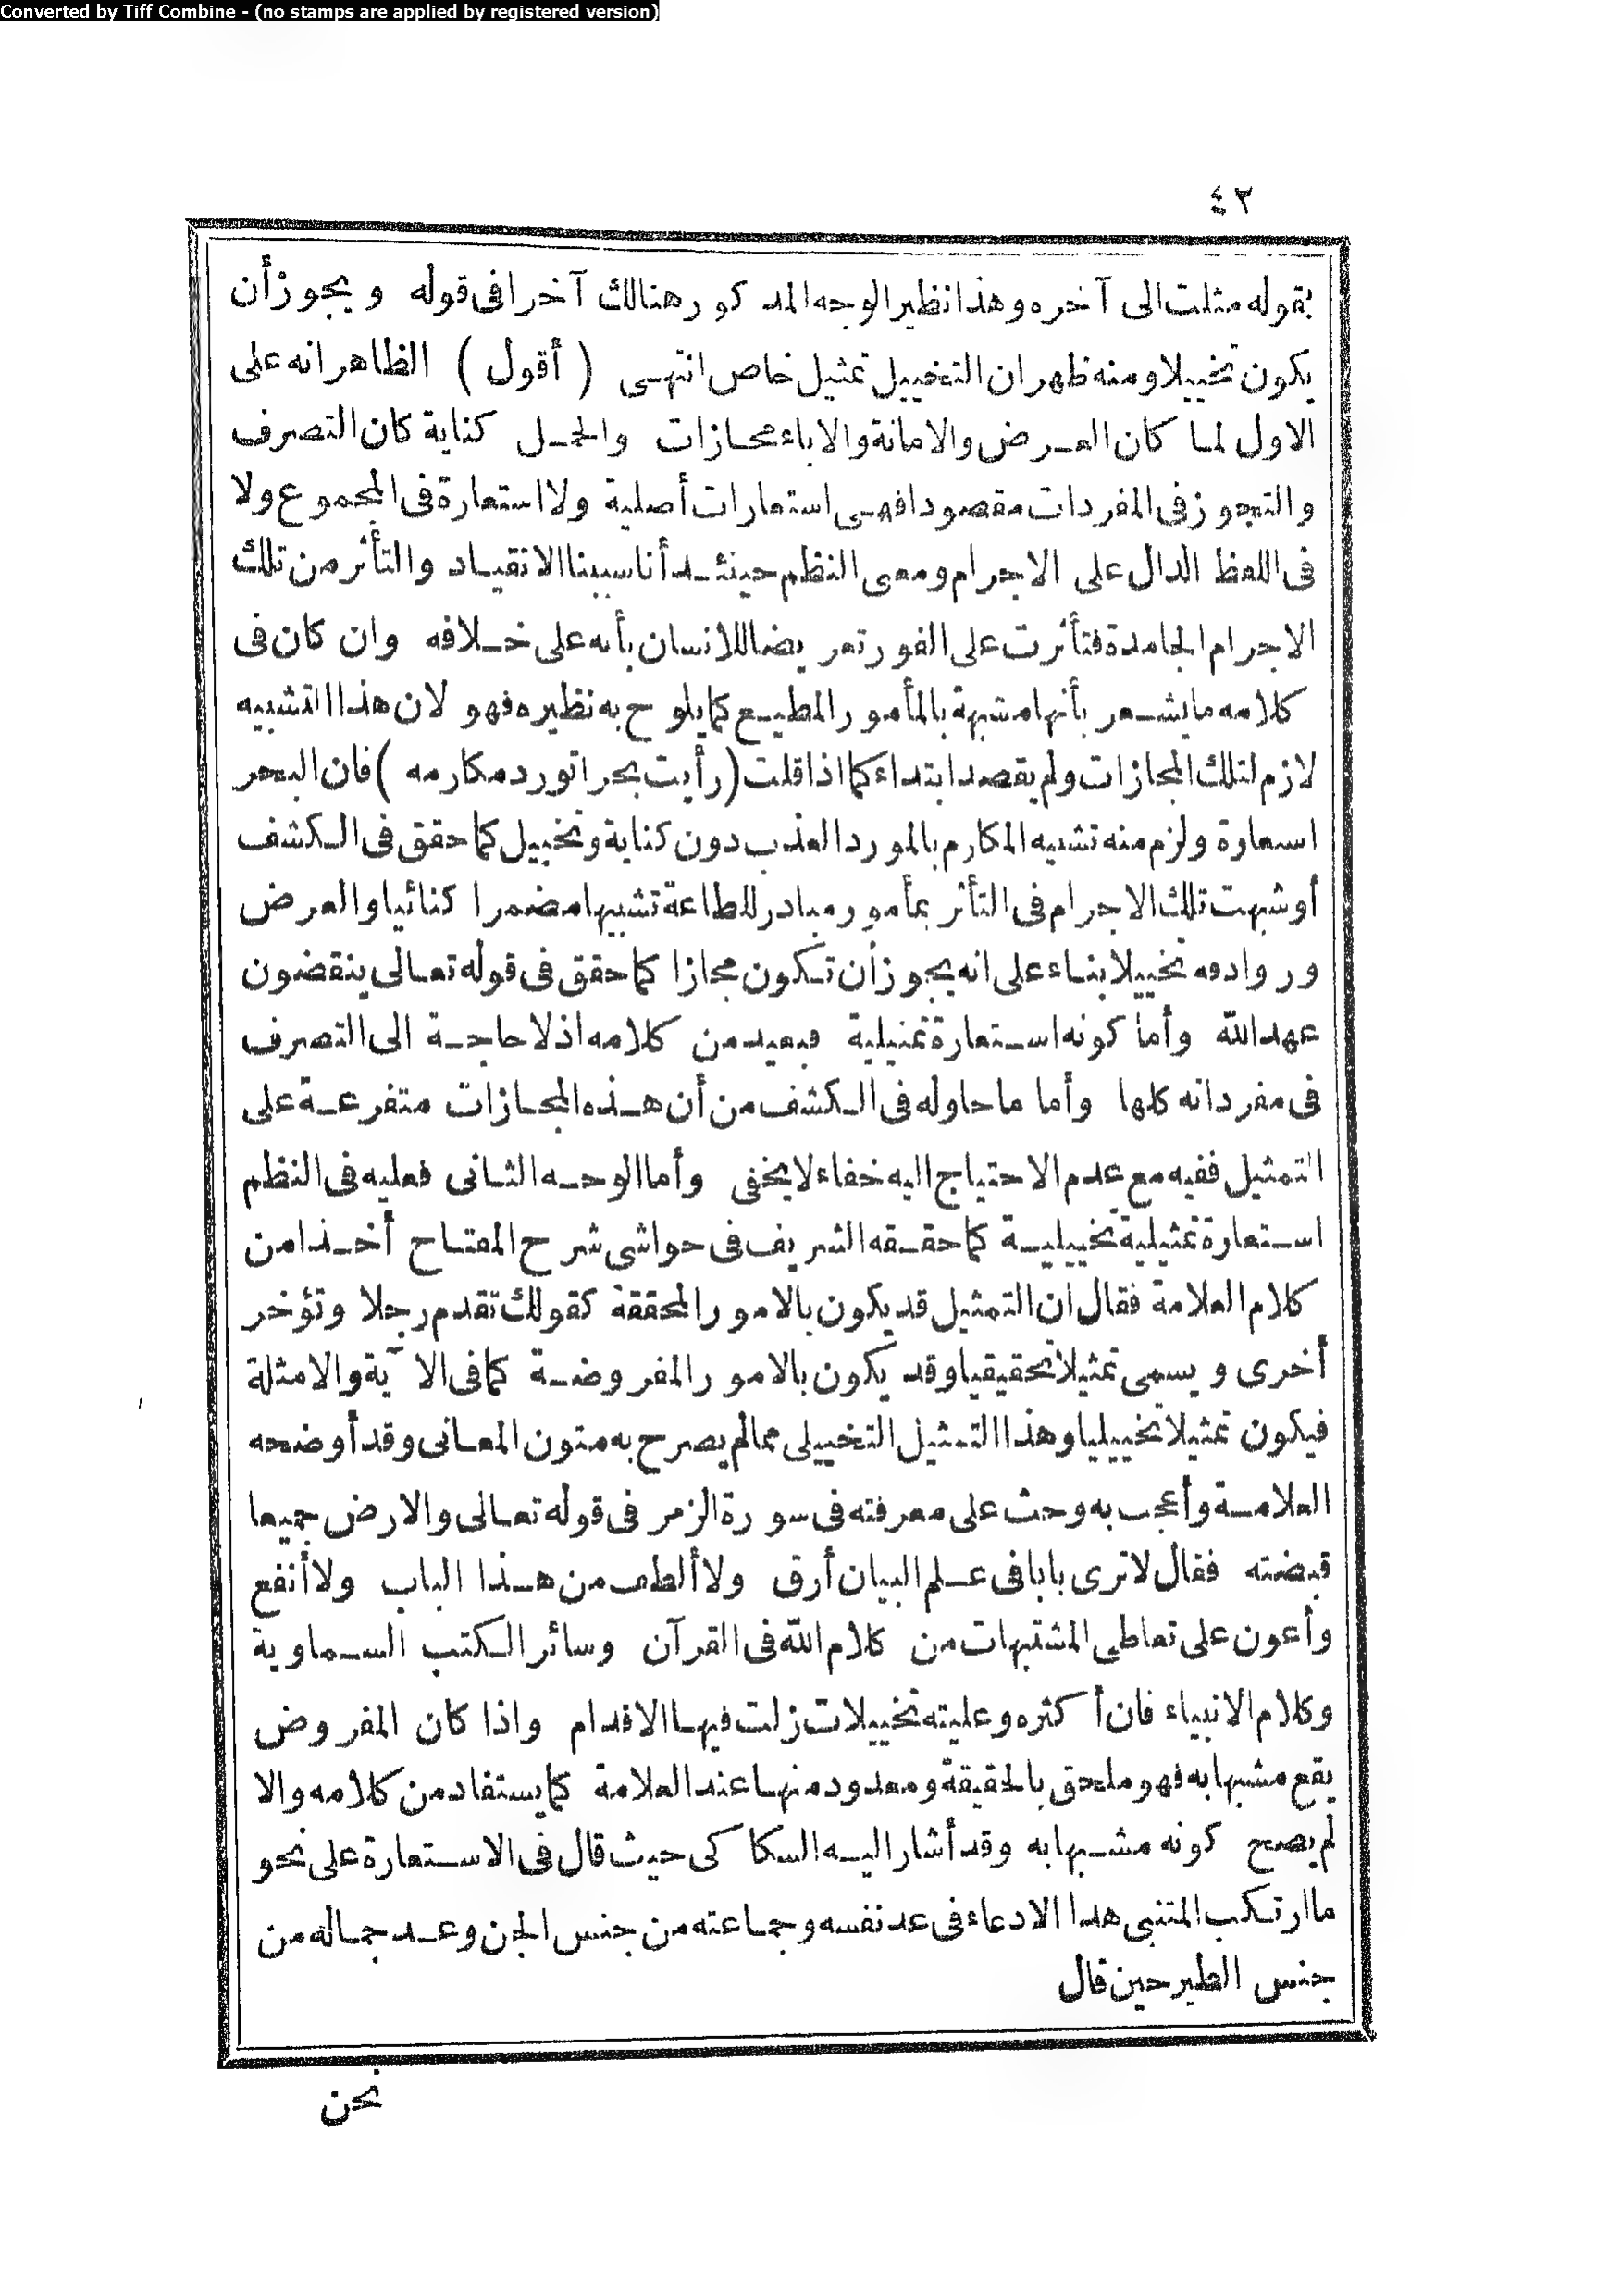 Converted by Tiff Combine - (no stamps are applied by registered version)
٤٢
بقوله مثلت الى آخره وهذا نظير الوجه المذكور هنالك آخرا فى قوله ويجوز أن
يكون تخييلا ومنه ظهر ان التخييل تمثيل خاص انتهى ( أقول ) الظاهر انه على
الاول لما كان العرض والامانة والاباء مجازات والحمل كناية كان التصرف
والتجوز فى المفردات مقصودا فهى استعارات أصلية ولا استعارة فى المجموع ولا
فى اللفظ الدال على الاجرام ومعنى النظم حينئذ أنا سببنا الانقياد والتأثر من تلك
الاجرام الجامدة فتأثرت على الفور تعريضا للانسان بأنه على خلافه وان كان فى
كلامه ما يشعر بأنها مشبهة بالمأمور المطيع كما يلوح به نظيره فهو لان هذا التشبيه
لازم لتلك المجازات ولم يقصد ابتداء كما اذا قلت (رأيت بحرا تورد مكارمه) فان البحر
استعارة ولزم منه تشبيه المكارم بالمورد العذب دون كناية وتخييل كما حقق فى الكشف
أو شبهت تلك الاجرام فى التأثر بمأمور مبادر للطاعة تشبيها مضمرا كنائيا والعرض
وروادفه تخييلا بناء على انه يجوز أن تكون مجازا كما حقق فى قوله تعالى ينقضون
عهد الله وأما كونه استعارة تمثيلية فبعيد من كلامه اذ لا حاجة الى التصرف
فى مفرداته كلها وأما ما حاوله فى الكشف من أن هذه المجازات متفرعة على
التمثيل ففيه مع عدم الاحتياج اليه خفاء لا يخفى وأما الوجه الثانى فعليه فى النظم
استعارة تمثيلية تخييلية كما حققه الشريف فى حواشى شرح المفتاح أخذا من
كلام العلامة فقال ان التمثيل قد يكون بالامور المحققة كقولك تقدم رجلا وتؤخر
أخرى ويسمى تمثيلا تحقيقيا وقد يكون بالامور المفروضة كما فى الآية والامثلة
فيكون تمثيلا تخييليا وهذا التمثيل التخييلى مما لم يصرح به متون المعانى وقد أوضحه
العلامة وأعجب به وحث على معرفته فى سورة الزمر فى قوله تعالى والارض جميعا
قبضته فقال لا ترى بابا فى علم البيان أرق ولا ألطف من هذا الباب ولا أنفع
وأعون على تعاطى المشتبهات من كلام الله فى القرآن وسائر الكتب السماوية
وكلام الانبياء فان أكثره وعليته تخييلات زلت فيها الاقدام واذا كان المفروض
يقع مشبها به فهو ملحق بالحقيقة ومعدود منها عند العلامة كما يستفاد من كلامه والا
لم يصح كونه مشبها به وقد أشار اليه السكاكى حيث قال فى الاستعارة على نحو
ما ارتكب المتنبى هذا الادعاء فى عد نفسه وجماعته من جنس الجن وعد جماله من
جنس الطير حين قال
نحن